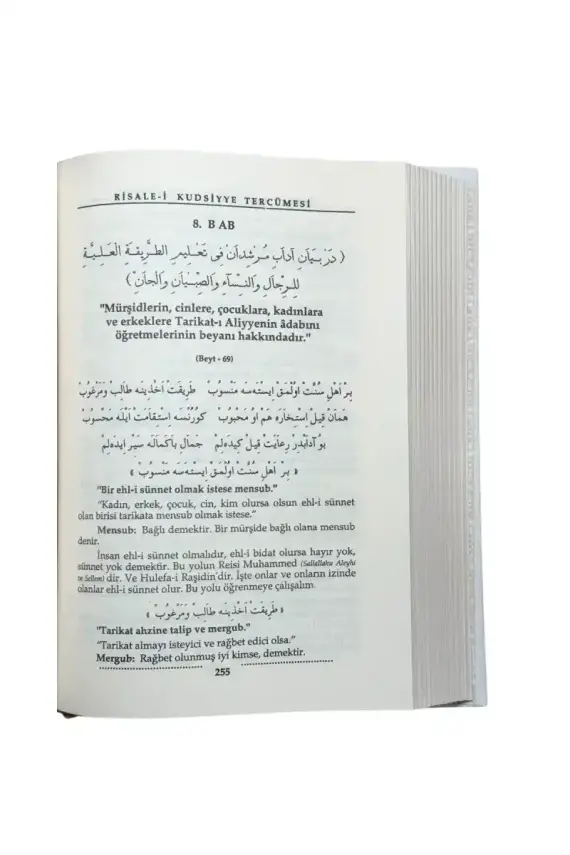 RİSALE-İ KUDSİYYE TERCÜMESİ
8. BAB
( دَرْ بَيَانِ آدَابِ مُرْشِدَانْ فِى تَعْلِيمِ الطَّرِيقَةِ الْعَلِيَّةِ
لِلرِّجَالِ وَالنِّسَآءِ وَالصِّبْيَانِ وَالْجَانِّ )
"Mürşidlerin, cinlere, çocuklara, kadınlara
ve erkeklere Tarikat-ı Aliyyenin âdabını
öğretmelerinin beyanı hakkındadır."
(Beyt - 69)
بِرْ اَهْلِ سُنَّتْ اوُلْمَقْ اِيسْتَه سَه مَنْسُوبْ طَرِيقَتْ اَخْذِينَه طَالِبْ وَمَرْغُوبْ
هَمَانْ قِيلْ اِسْتِخَارَه هَمْ اوُ مَحْبُوبْ كورُنْسَه اِسْتِقَامَتْ اَيْلَه مَحْسُوبْ
بُو آدَابْدِرْ رِعَايَتْ قِيلْ كِيدَه لِمْ جَمَالِ بَاكَمَالَه سَيْرْ ايدَه لِمْ
« بِرْ اَهْلِ سُنَّتْ اوُلْمَقْ اِيسْتَه سَه مَنْسُوبْ »
"Bir ehl-i sünnet olmak istese mensub."
"Kadın, erkek, çocuk, cin, kim olursa olsun ehl-i sünnet
olan birisi tarikata mensub olmak istese."
Mensub: Bağlı demektir. Bir mürşide bağlı olana mensub
denir.
İnsan ehl-i sünnet olmalıdır, ehl-i bidat olursa hayır yok,
sünnet yok demektir. Bu yolun Reisi Muhammed (Sallallahu Aleyhi
ve Sellem) dir. Ve Hulefa-i Raşidin'dir. İşte onlar ve onların izinde
olanlar ehl-i sünnet olur. Bu yolu öğrenmeye çalışalım.
« طَرِيقَتْ اَخْذِينَه طَالِبْ وَمَرْغُوبْ »
"Tarikat ahzine talip ve mergub."
"Tarikat almayı isteyici ve rağbet edici olsa."
Mergub: Rağbet olunmuş iyi kimse, demektir.
255